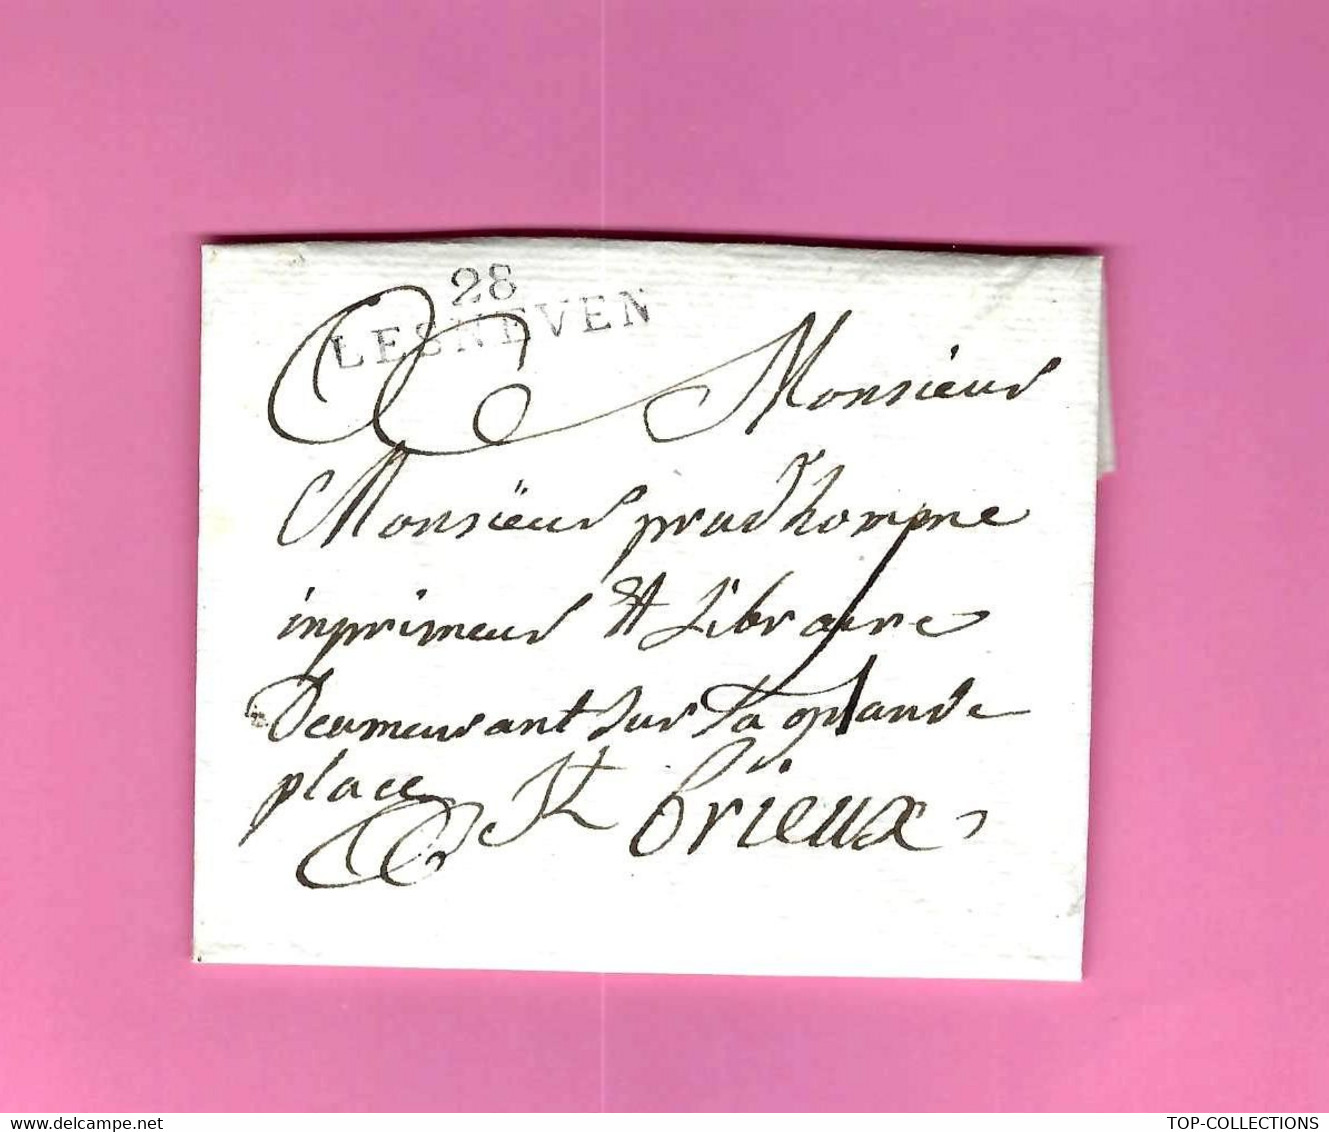 28
LESNEVEN
Monsieur
Monsieur prud'homme
inprimeur et Libraire
Deumeurant sur La grande
place St brieux
delcampe.net
TOP-COLLECTIONS